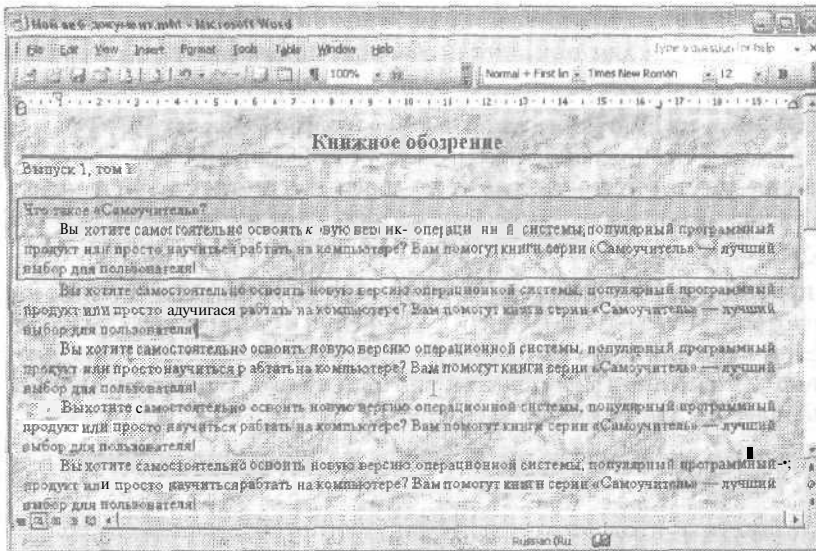 Мой веб-документ.mht - Microsoft Word
File Edit View Insert Format Tools Table Window Help Type a question for help
100% Normal + First lin Times New Roman 12 B
1 2 3 4 5 6 7 8 9 10 11 12 13 14 15 16 17 18 19
Книжное обозрение
Выпуск 1, том 1
Что такое «Самоучитель»?
Вы хотите самостоятельно освоить вую операци системы, популярный программный
продукт или просто научиться рабтать на компьютере? Вам помогут книги серии «Самоучитель» — лучший
выбор для пользователя!
Вы хотите самостоятельно освоить новую версию операционной системы, популярный программный
продукт или просто адучигася рабтать на компьютере? Вам помогут книги серии «Самоучитель» — лучший
выбор для пользователя!
Вы хотите самостоятельно освоить новую версию операционной системы, популярный программный
продукт или просто научиться рабтать на компьютере? Вам помогут книги серии «Самоучитель» — лучший
выбор для пользователя!
Вы хотите самостоятельно освоить новую версию операционной системы, популярный программный
продукт или просто научиться рабтать на компьютере? Вам помогут книги серии «Самоучитель» — лучший
выбор для пользователя!
Вы хотите самостоятельно освоить новую версию операционной системы, популярный программный
продукт или просто научиться рабтать на компьютере? Вам помогут книги серии «Самоучитель» — лучший
выбор для пользователя!
Russian (Ru